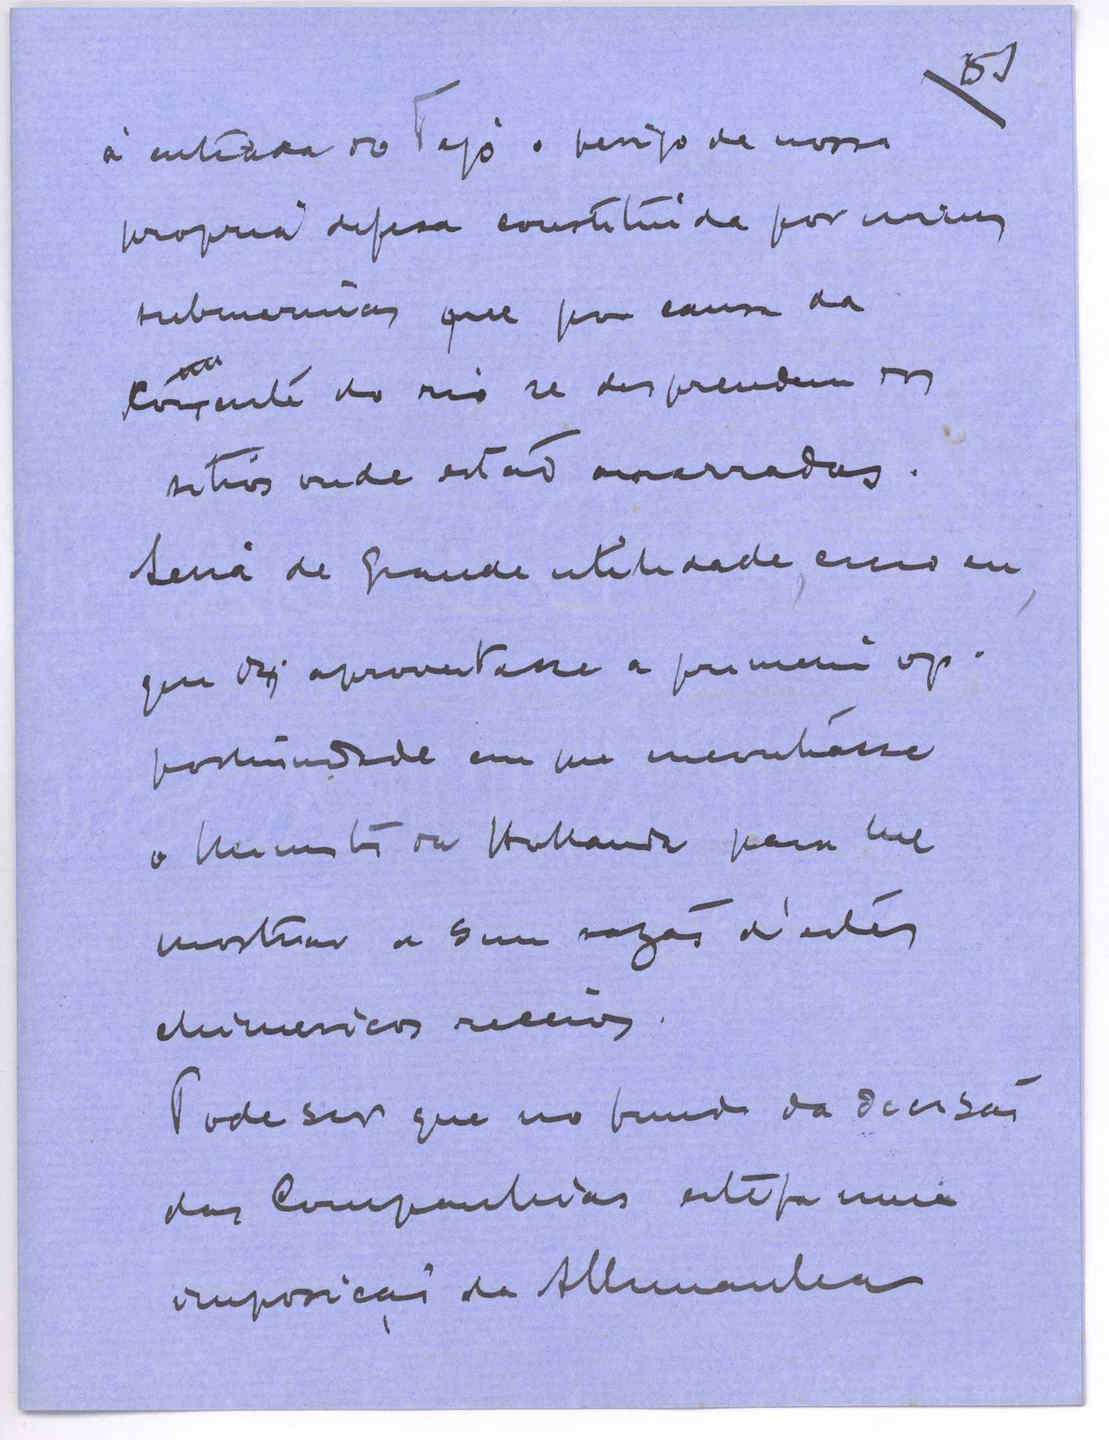 5)
à entrada do Tejo o perigo de nossa
propria defesa constituida por minas
submarinas que por causa da
Corrente do rio se desprendem dos
sitios onde estaõ amarradas.
Seria de grande utilidade, creio eu,
que aproveitasse a primeira op-
portunidade em que encontrásse
o Ministro da Hollanda para lhe
mostrar a sem razaõ d'estes
chimericos receios.
Pode ser que no fundo da decisaõ
das Companhias esteja uma
imposiçaõ da Allemanha